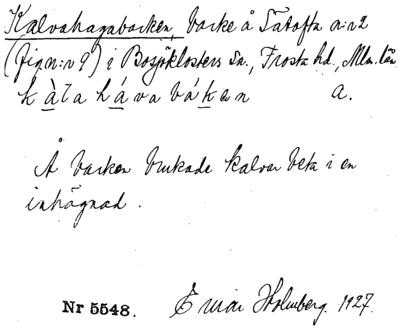 Kalvahagabacken, backe å Tåtofta n:r 2
(fig n:r 9) i Bosjöklosters sn., Frosta hd., Mlm. län
kàlahávabákan a.
Å backen brukade kalvar beta i en
inhägnad.
Nr 5548. Einar Holmberg. 1927.